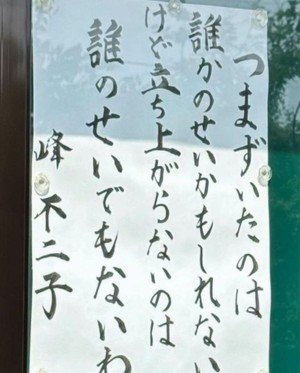 つまずいたのは
誰かのせいかもしれない
けど立ち上がらないのは
誰のせいでもないわ
峰不二子